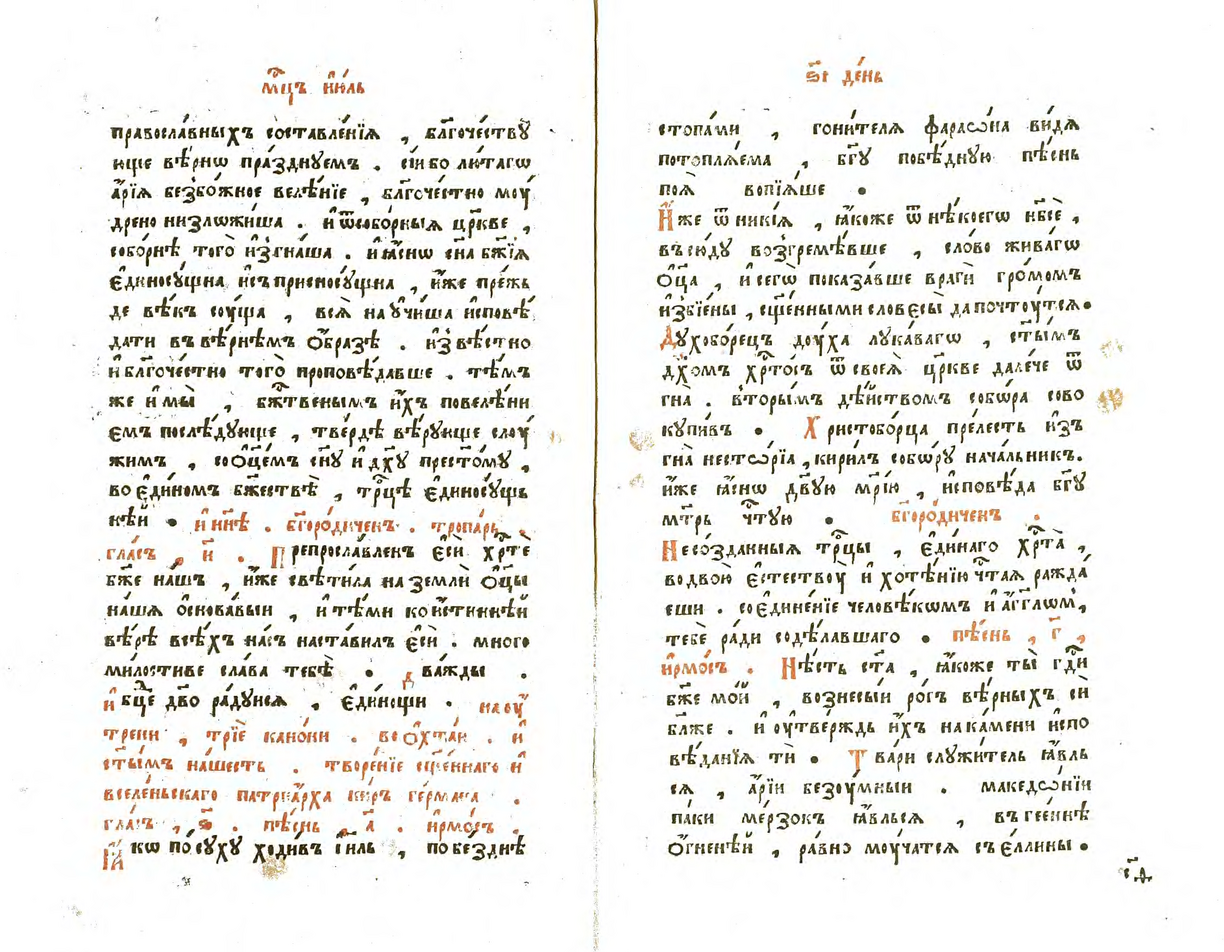 мц҃ъ і҆ю́ль
правосла́вныхъ соста́вленїѧ , бл҃гочествꙋ́
юще вѣ́рнѡ пра́зднꙋемъ . сі́и бо лю́тагѡ
а҆́рїѧ безбо́жное веле́нїе , бл҃гоче́стно моу́
дрено низложи́ша . и҆ ѿ собо́рныѧ цр҃кве ,
собо́рнѣ того̀ и҆згна́ша . и҆ ꙗ҆́снѡ сн҃а бж҃їѧ
є҆диносꙋ́щна и҆ съприсносꙋ́щна , и҆́же пре́жь
де вѣ́къ соу́ща , всѧ̀ наꙋчи́ша и҆сповѣ́
дати въ вѣ́рнѣмъ ѻ҆́бразѣ . и҆звѣ́стно
и҆ бл҃гоче́стно того̀ проповѣ́давше . тѣ́мъ
же и҆ мы̀ , бж҃твеными и҆́хъ повелѣ́ни
емъ послѣ́дꙋюще , тве́рдѣ вѣ́рꙋюще слоу́
жимъ , со ѻ҆ц҃емъ сн҃ꙋ и҆ дх҃ꙋ прест҃о́мꙋ ,
во є҆ди́номъ бж҃ествѣ̀ , тр҃цѣ є҆диносꙋ́щь
нѣ́й • и҆ нн҃ѣ . бг҃оро́диченъ . тропа́рь ,
гла́съ , и҃ . Препросла́вленъ є҆сѝ хр҃тѐ
бж҃е на́шъ , и҆́же свѣти́ла на землѝ ѻ҆ц҃ы
на́шѧ ѡ҆снова́выи , и҆ тѣ́ми ко и҆́стиннѣй
вѣ́рѣ всѣ́хъ на́съ наста́вилъ є҆сѝ . много
ми́лостиве сла́ва тебѣ̀ • два́жды .
и҆ бц҃е дв҃о ра́дꙋисѧ , є҆ди́ною . на оу҆́
трени , трїѐ кано́ни . во ѻ҆хта́и . и҆
ст҃ы́мъ на ше́сть . творе́нїе сщ҃е́ннаго и҆
вселе́ньскаго патриа́рха кѵ́ръ ге́рмана .
гла́съ , ѕ҃ . пѣ́снь , а҃ . і҆рмо́съ .
Ꙗ҆́кѡ по сꙋ́хꙋ ходи́въ і҆и҃ль , по бе́зднѣ
ѕ҃і де́нь
стопа́ми , гони́телѧ фараѡ́на ви́дѧ
потоплѧ́ема , бг҃ꙋ побѣ́днꙋю пѣ́снь
поѧ̀ вопїѧ́ше •
И҆́же ѿ нике́ѧ , ꙗ҆́коже ѿ нѣ́коегѡ нб҃сѐ ,
всю́дꙋ возгремѣ́вше , сло́во жива́гѡ
ѻ҆ц҃а , и҆ сегѡ̀ показа́вше врагѝ гро́момъ
и҆збїе́ны , сщ҃е́нными словесы̀ да почтоу́тсѧ •
Дꙋхобо́рецъ доу́ха лꙋка́вагѡ , ст҃ы́мъ
дх҃омъ хр҃то́съ ѿ своеѧ̀ цр҃кве дале́че ѿ
гна̀ . вторы́мъ дѣ́йствомъ собѡ́ра сово
кꙋпи́въ • Христобо́рца пре́лесть и҆з
гна̀ несто́рїа , кири́лъ собѡ́рꙋ нача́льникъ .
и҆́же ꙗ҆́снѡ дв҃ꙋю мр҃і́ю , и҆сповѣ́да бг҃ꙋ
мт҃рь чт҃ꙋю • бг҃оро́диченъ .
Несо́зданныѧ тр҃цы , є҆ди́наго хр҃та̀ ,
во двою̀ є҆стествоу̀ и҆ хотѣ́нїю чт҃аѧ ража́
еши . соедине́нїе человѣ́кѡмъ и҆ а҆́гг҃лѡмъ ,
тебѐ ра́ди содѣ́лавшаго • пѣ́снь , г҃ ,
і҆рмо́съ . Нѣ́сть ст҃а , ꙗ҆́коже ты̀ гд҃и
бж҃е мо́й , вознесы́и ро́гъ вѣ́рныхъ сѝ
бл҃же . и҆ оу҆твержь и҆́хъ на ка́мени и҆спо
вѣ́данїѧ тѝ • Тва́ри слꙋжи́тель ꙗ҆́вль
сѧ , а҆́рїи безоу́мныи . македѡ́нїи
па́ки ме́рзокъ ꙗ҆́вльсѧ , въ гее́ннѣ
ѻ҆́гненѣй , ра́внѡ моу́чатсѧ съ є҆́ллины •
с҃д